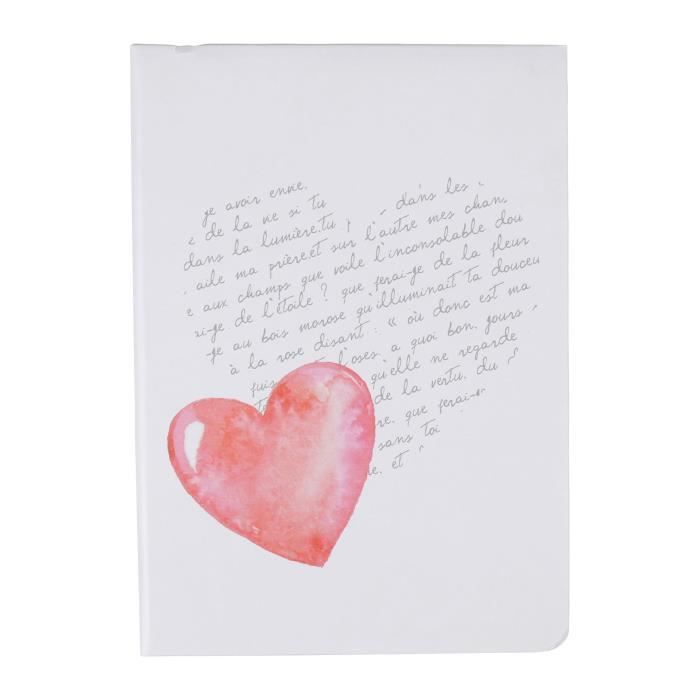 je avoir envie.
de la vie si tu dans les
dans la lumière.tu
aile ma prière.et sur l'autre mes chan
e aux champs que voile l'inconsolable dou
ai-je de l'étoile ? que ferai-je de la fleur
-je au bois morose qu'illuminait ta douceu
à la rose disant : « où donc est ma
puis l'oses. a quoi bon. jours
qu'elle ne regarde
de la vertu. du
re. que ferai-
sans toi
e. et